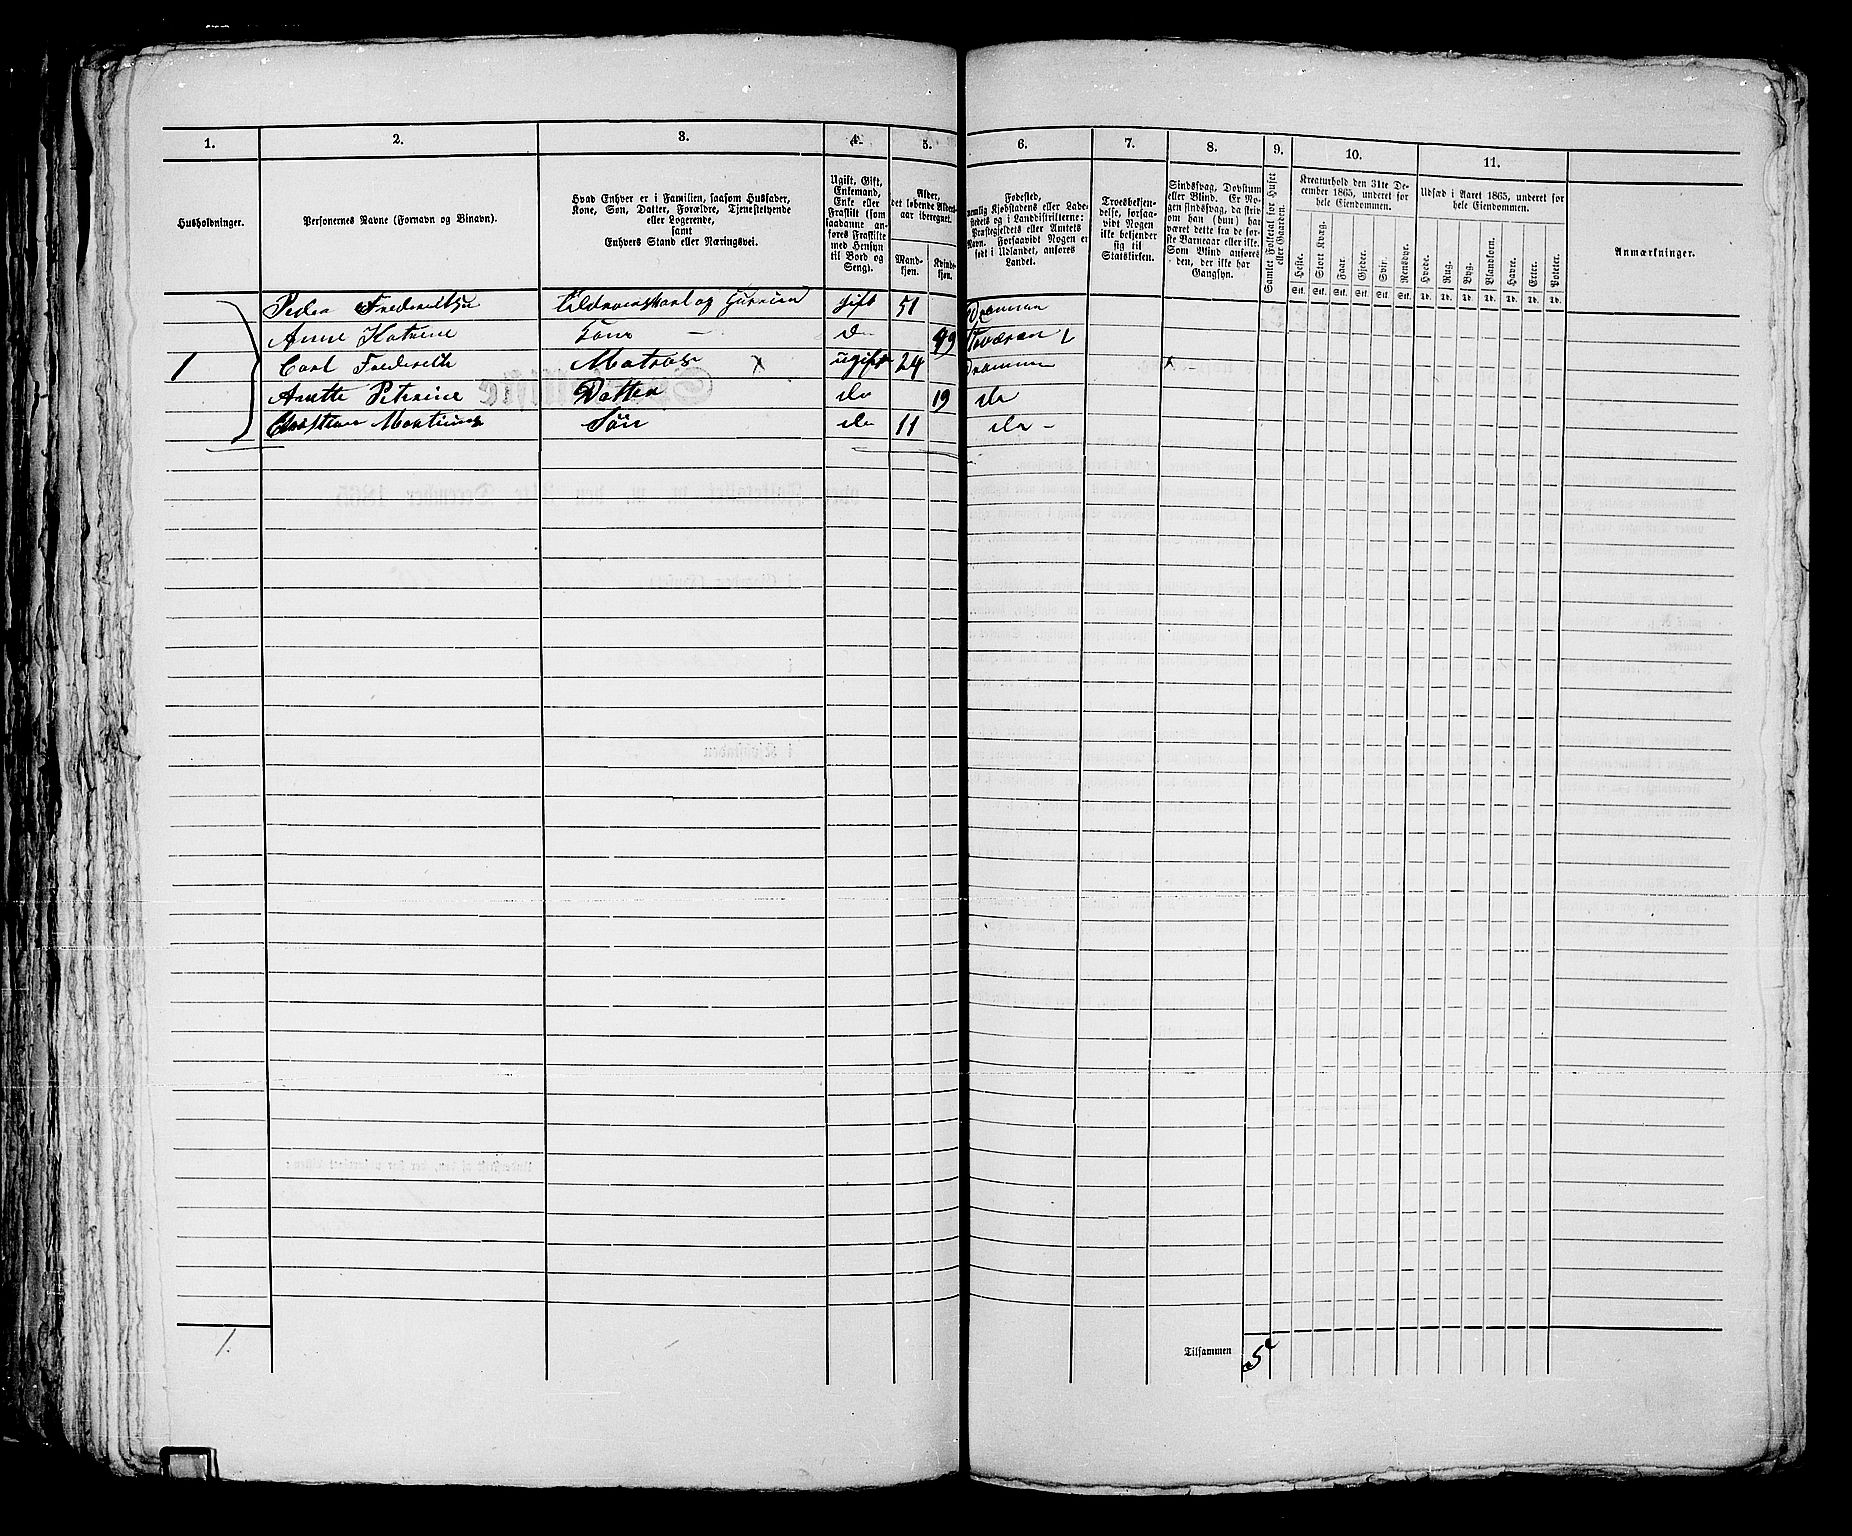 1. 2. 3. 4. 5. 6. 7. 8. 9. 10. 11.
Husholdninger.
Personernes Navne (Fornavn og Binavn).
Hvad Enhver er i Familien, saasom Husfader,
Kone, Søn, Datter, Forældre, Tjenestetyende
eller Logerende,
samt
Enhvers Stand eller Næringsvei.
Ugift, Gift,
Enkemand,
Enke eller
Fraskilt (som
saadanne anføres Fraskilte
med Hensyn
til Bord og
Seng).
Alder,
det løbende Alders-
aar iberegnet.
Mand-
kjøn.
Kvinde-
kjøn.
Fødested,
nemlig Kjøbstadens eller Lade-
stedets og i Landdistrikterne:
Præstegjeldets eller Amtets
Navn. Forsaavidt Nogen er
født i Udlandet, anføres
Landet.
Troesbekjen-
delse, forsaa-
vidt Nogen
ikke bekjender
sig til
Statskirken.
Sindssvag, Døvstum
eller Blind. Er No-
gen sindssvag, da skriv
om han (hun) har
været dette fra de før-
ste Barneaar eller ikke.
Som Blind anføres
den, der ikke har
Gangsyn.
Samlet Folketal for Huset
eller Gaarden.
Kreaturhold den 31te De-
cember 1865, underet for
hele Eiendommen.
Heste. Stort Kvæg. Faar. Gjeder. Svin. Rensdyr.
Stk. Stk. Stk. Stk. Stk. Stk.
Udsæd i Aaret 1865, underet for
hele Eiendommen.
Hvede. Rug. Byg. Blandkorn. Havre. Erter. Poteter.
Td. Td. Td. Td. Td. Td. Td.
Anmærkninger.
Peder Frederiksen og gift 51 Drammen
Anne Katrine Kone — do 49
1 Carl Frederik Matros x ugift 24 Drammen x
Anette Petrine Datter do 19 do
Christian Martinus Søn do 11 do -
1.
Tilsammen 5